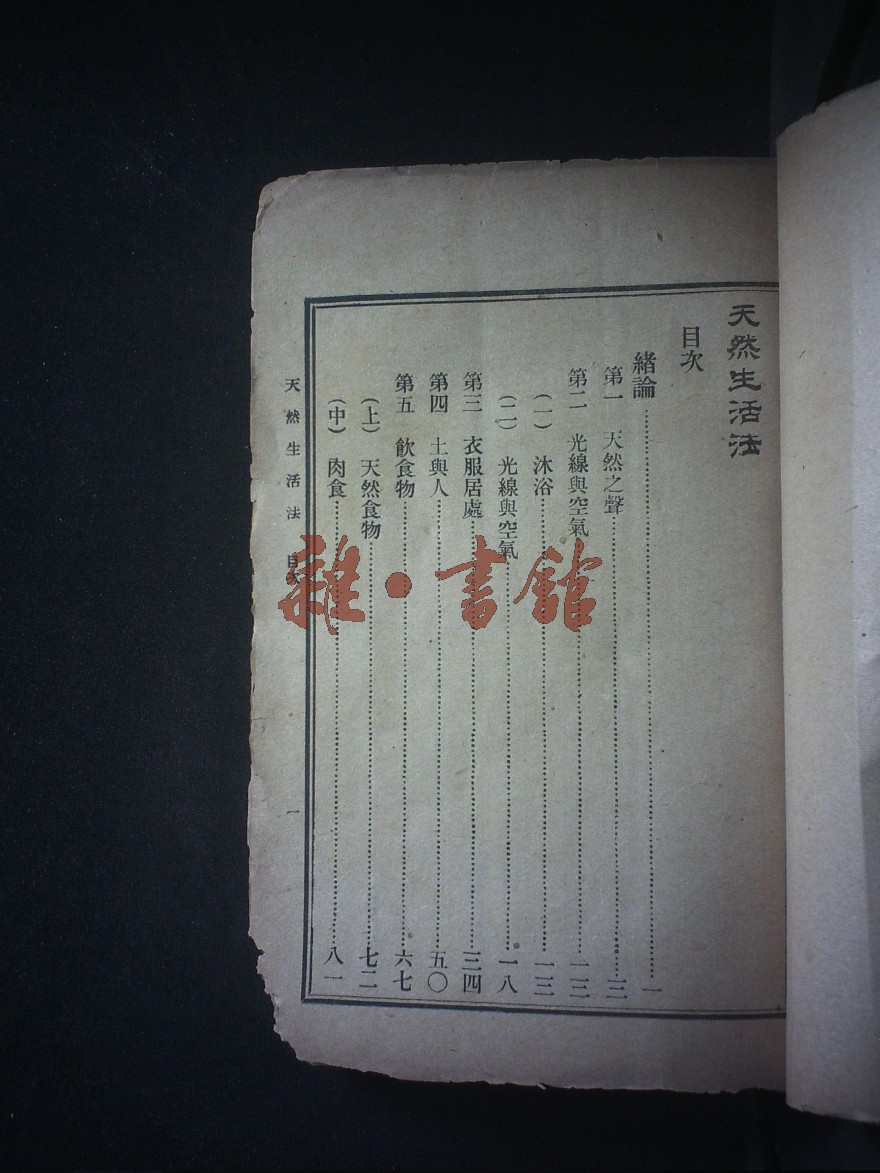 天然生活法
目次
緒論……一
第一 天然之聲……三
第二 光線與空氣……一三
(一) 沐浴……一三
(二) 光線與空氣……一八
第三 衣服居處……三四
第四 土與人……五〇
第五 飲食物……六七
(上) 天然食物……七二
(中) 肉食……八一
天然生活法 目次 一
雜·書館